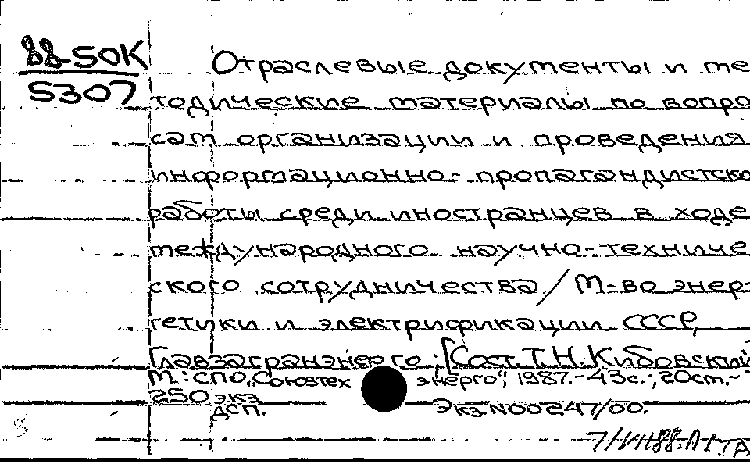 88-50К
5307
Отраслевые документы и ме
тодические материалы по вопро
сам организации и проведения
информационно-пропагандистско
работы среди иностранцев в ходе
международного научно-техниче
ского сотрудничества / М-во энер
гетики и электрификации СССР,
Главзагранэнерго; [Сост. Т.Н. Кибовский
М.: СПО, Союзтех энерго", 1987.-43с.; 20см.-
250 экз.
ДСП. Экз.N00247/00.